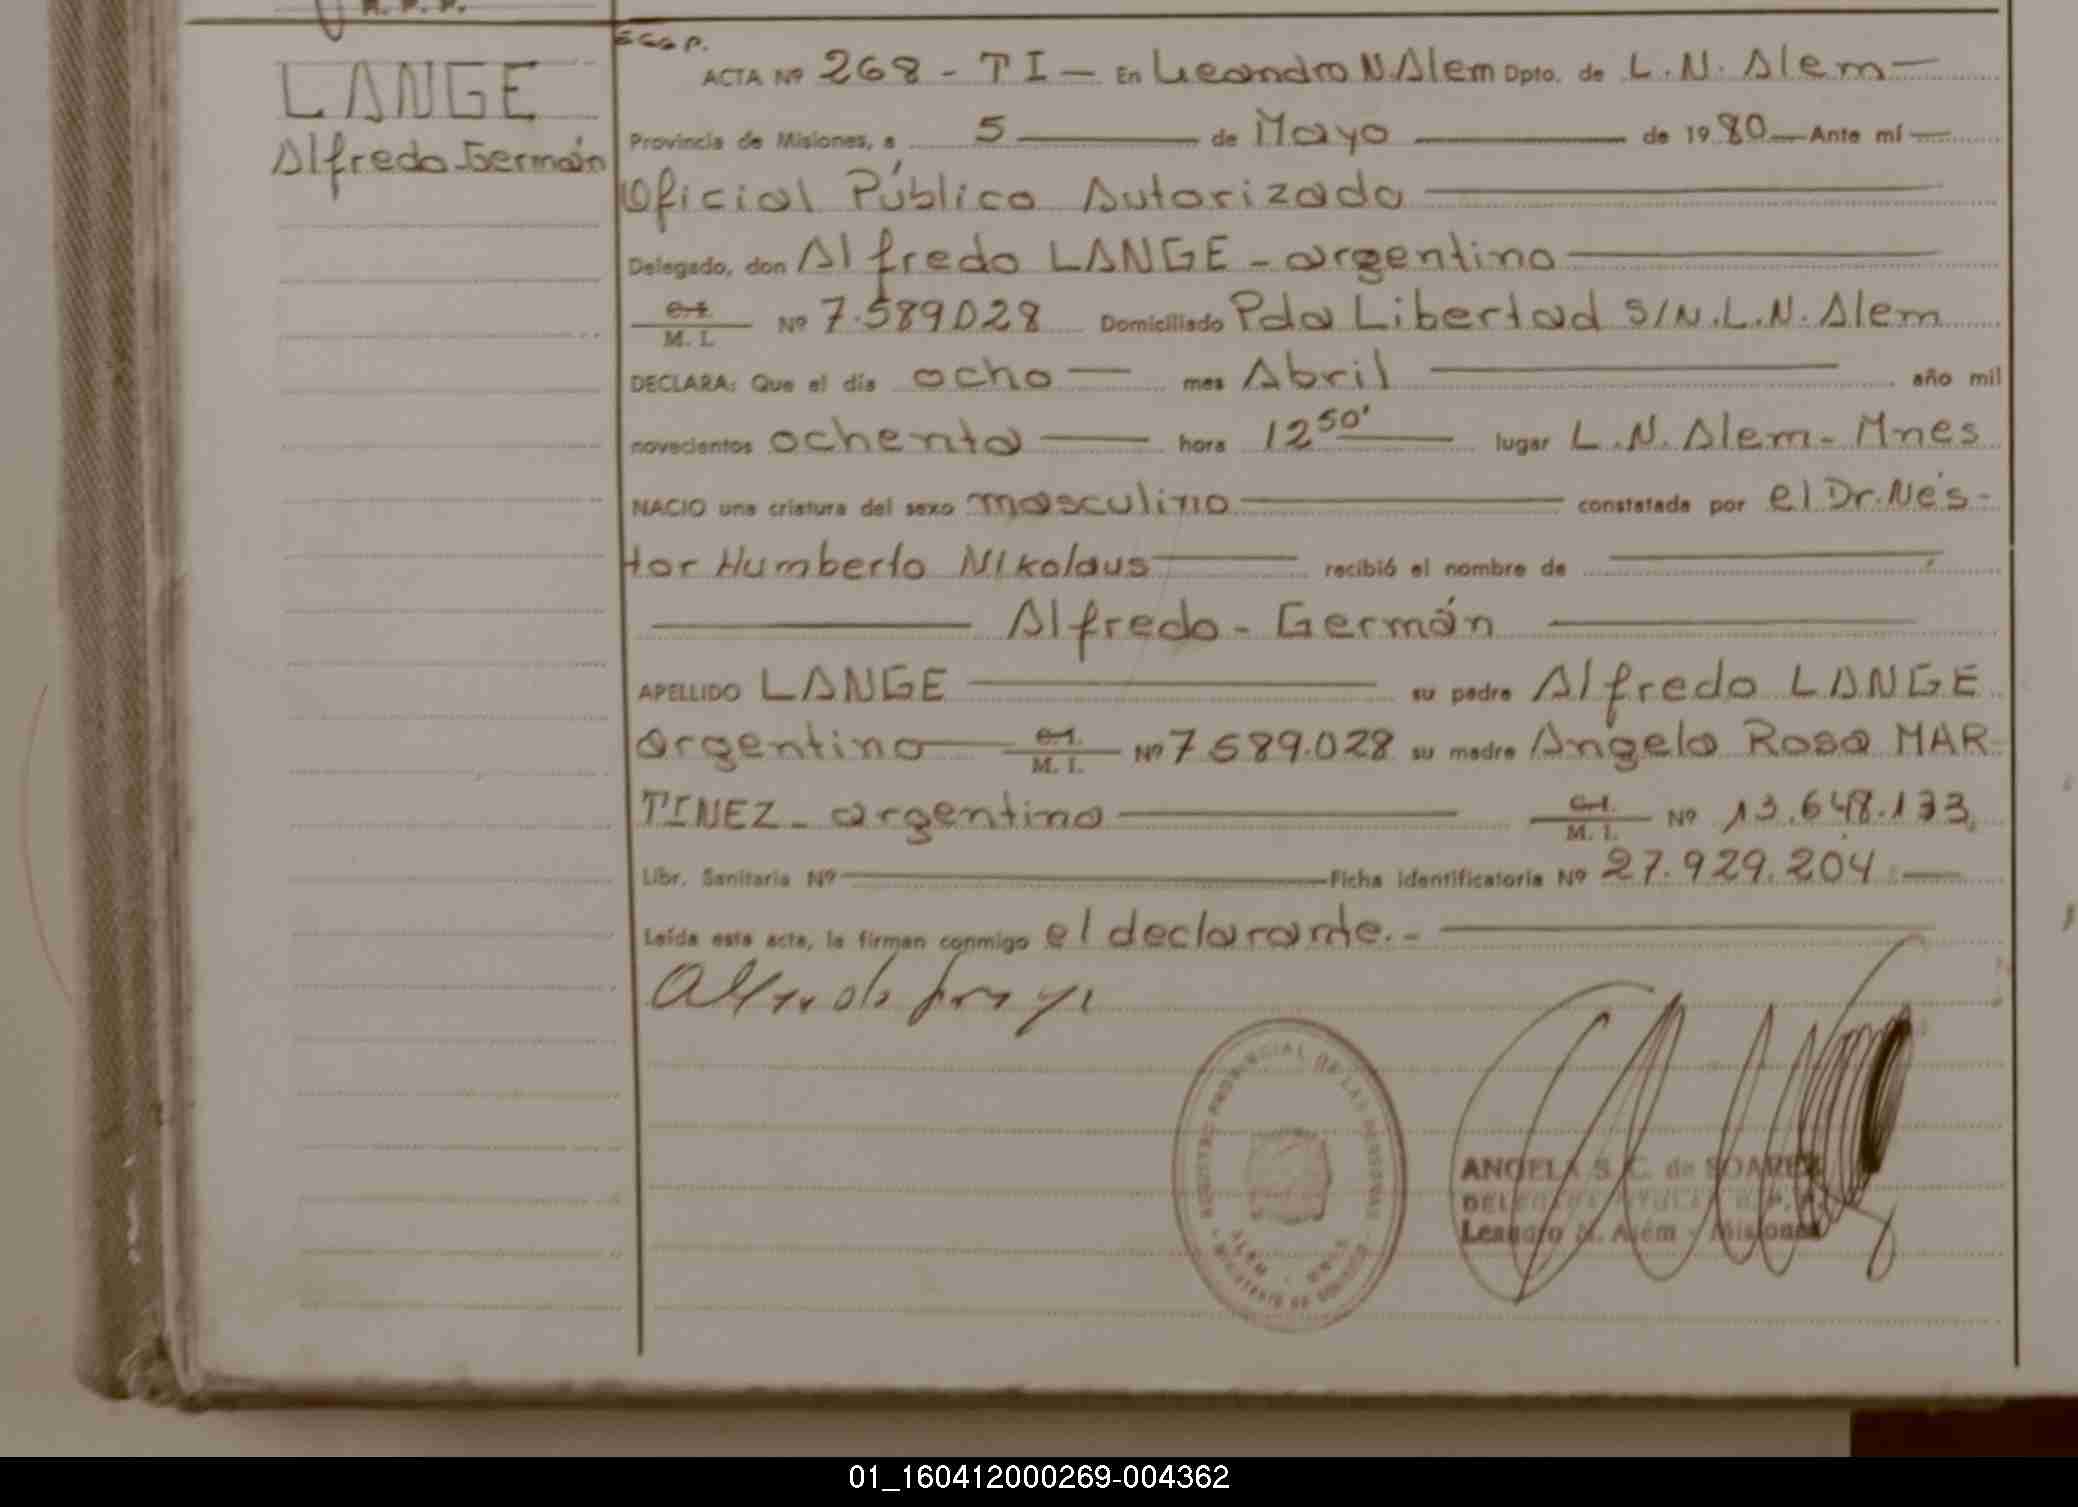 R. P. P.
LANGE
Alfredo-Germán
ACTA Nº 268 - T I - En Leandro N. Alem Dpto. de L. N. Alem
Provincia de Misiones, a 5 de Mayo de 1980 Ante mí
Oficial Público Autorizado
Delegado, don Alfredo LANGE - argentino
C.I. / M. I. Nº 7.589028 Domiciliado Pda Libertad S/N. L.N. Alem
DECLARA: Que el día ocho mes Abril año mil
novecientos ochenta hora 12 50' lugar L. N. Alem - Mnes
NACIO una criatura del sexo masculino constatada por el Dr. Nés-
tor Humberto NIkolaus recibió el nombre de
Alfredo - Germán
APELLIDO LANGE su padre Alfredo LANGE
argentino C.I. / M. I. Nº 7589.028 su madre Angela Rosa MAR-
TINEZ - argentina C.I. / M. I. Nº 13.648.133
Libr. Sanitaria Nº Ficha Identificatoria Nº 27.929.204
Leída esta acta, la firman conmigo el declarante.-
REGISTRO PROVINCIAL DE LAS PERSONAS
ALEM - MNES
MINISTERIO DE GOBIERNO
ANGELA S. C. de SOAREZ
Leandro N. Alem - Misiones
01_160412000269-004362